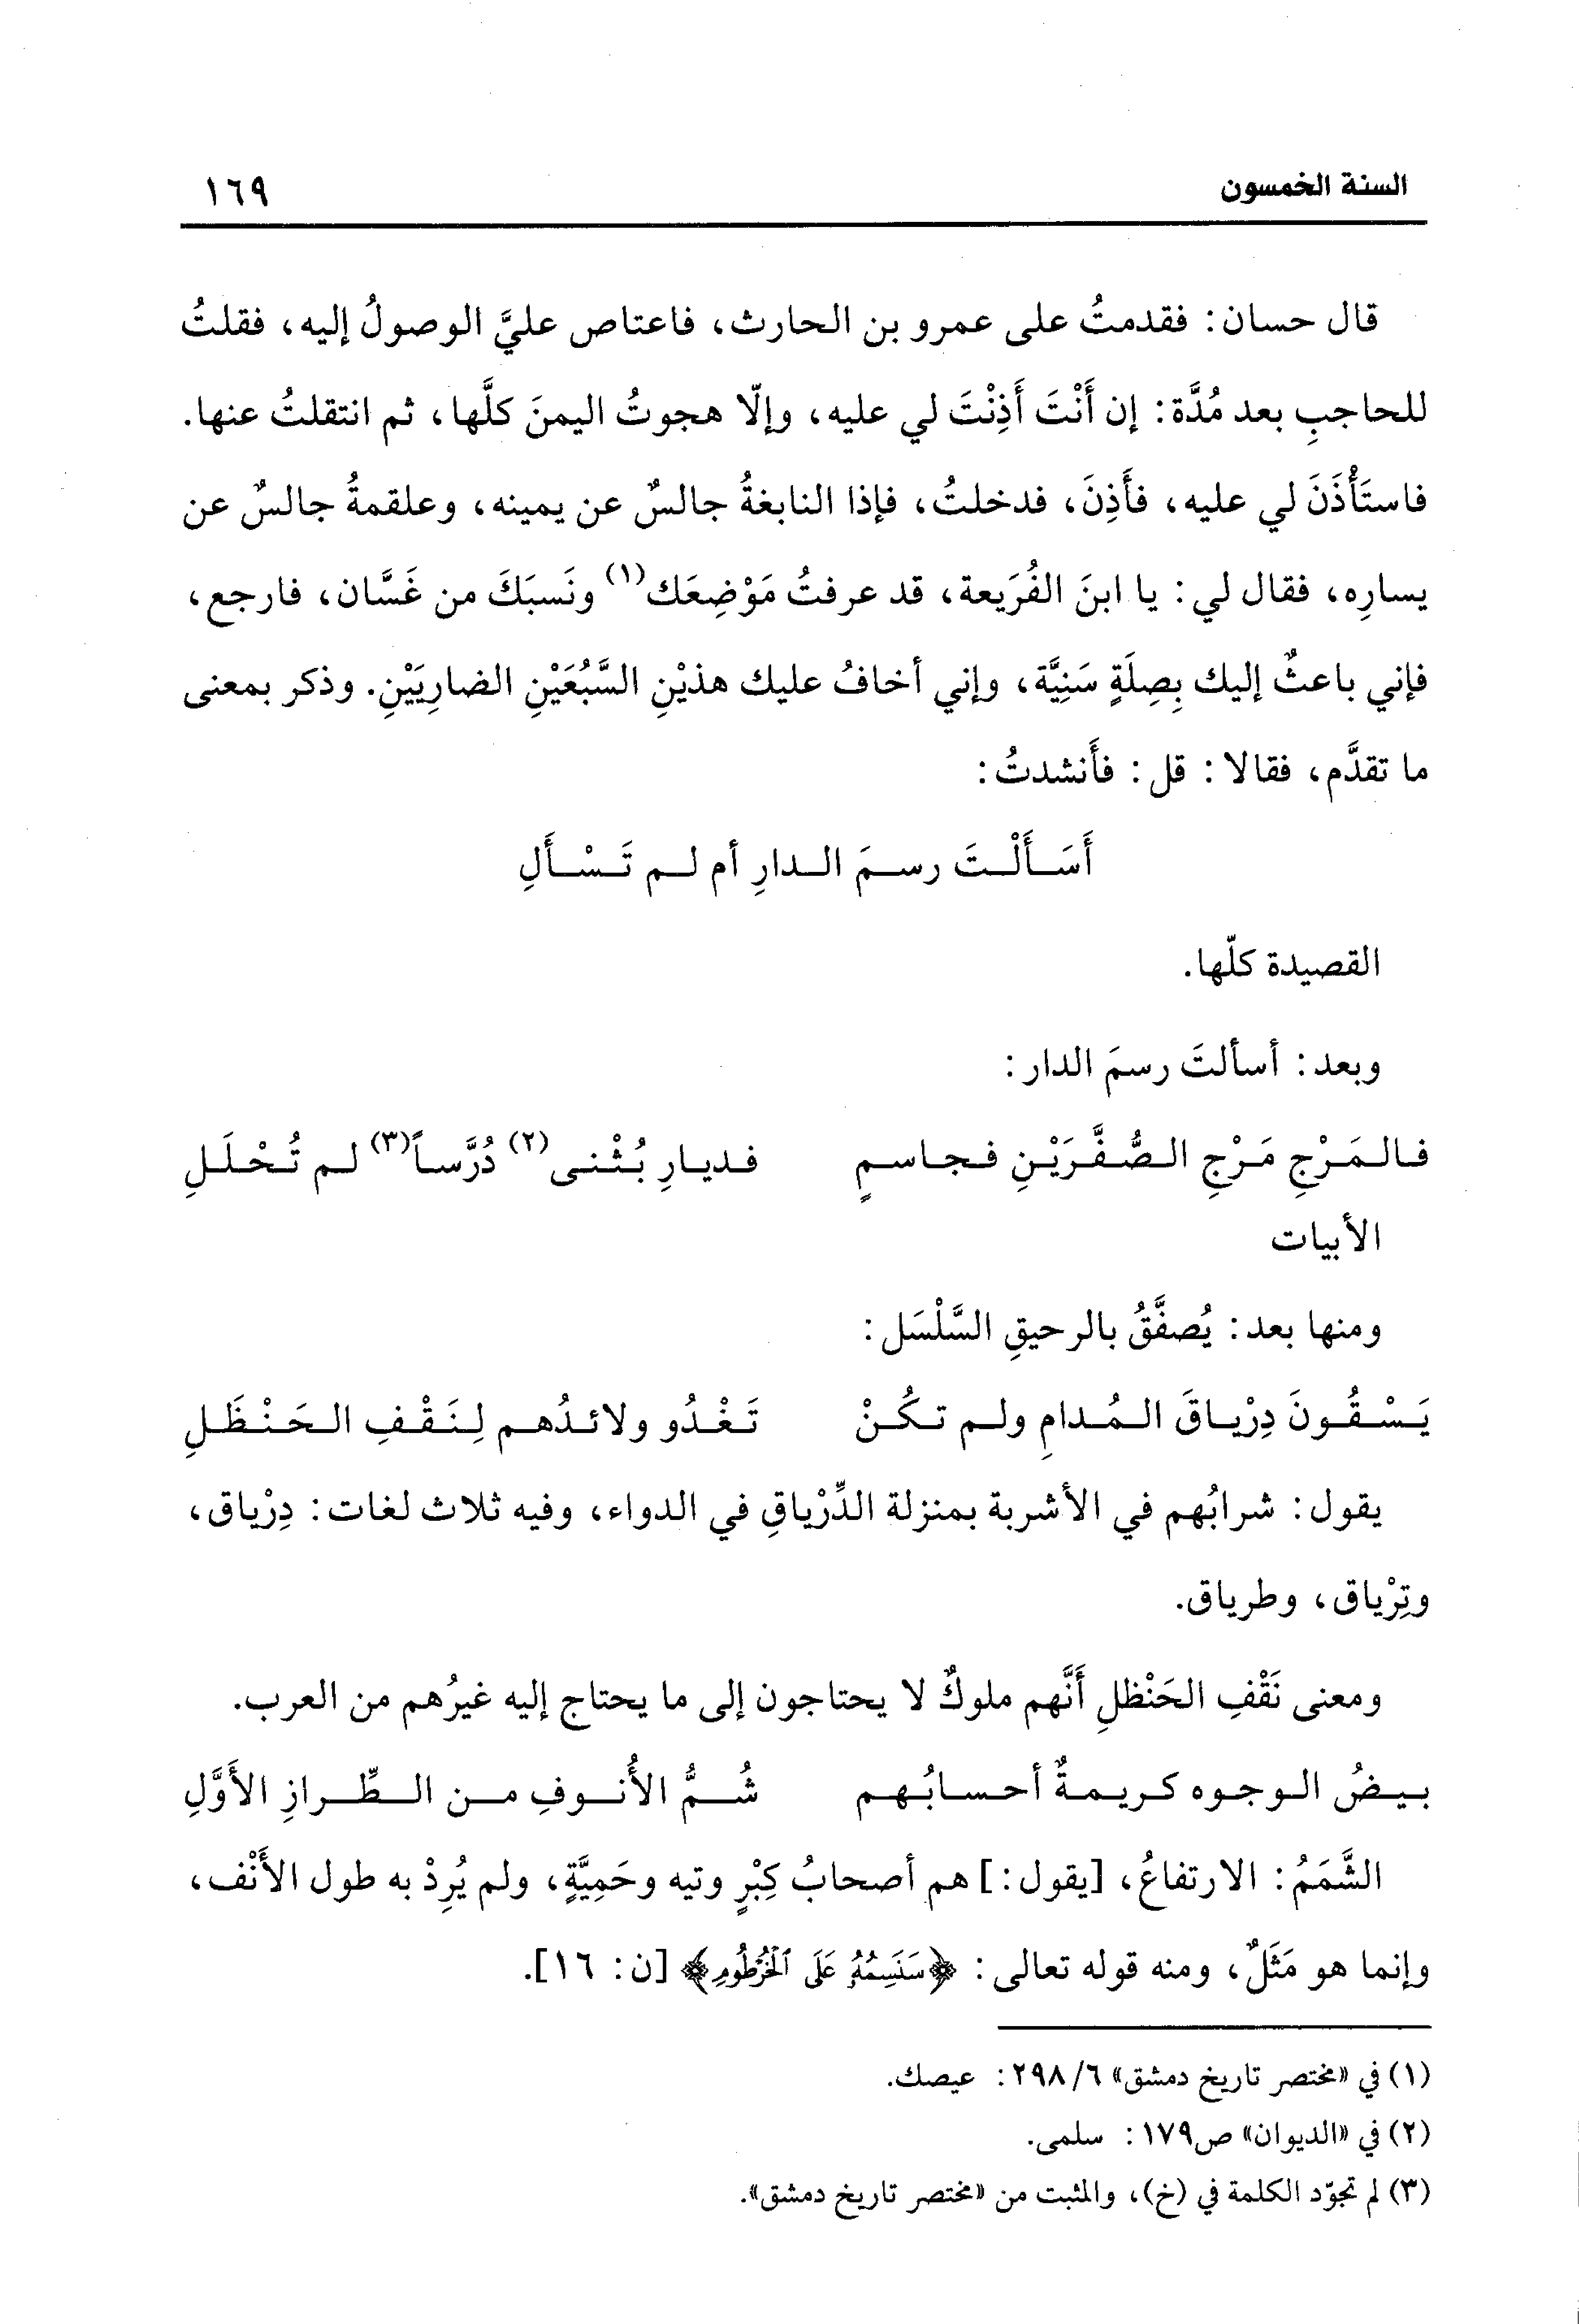 السنة الخمسون ١٦٩
قال حسان: فقدمتُ على عمرو بن الحارث، فاعتاص عليَّ الوصولُ إليه، فقلتُ
للحاجبِ بعد مُدَّة: إن أَنْتَ أَذِنْتَ لي عليه، وإلّا هجوتُ اليمنَ كلَّها، ثم انتقلتُ عنها.
فاستَأْذَنَ لي عليه، فأَذِنَ، فدخلتُ، فإذا النابغةُ جالسٌ عن يمينه، وعلقمةُ جالسٌ عن
يسارِه، فقال لي: يا ابنَ الفُرَيعة، قد عرفتُ مَوْضِعَك(١) ونَسبَكَ من غَسَّان، فارجع،
فإني باعثٌ إليك بِصِلَةٍ سَنِيَّة، وإني أخافُ عليك هذيْنِ السَّبُعَيْنِ الضارِيَيْنِ. وذكر بمعنى
ما تقدَّم، فقالا: قل: فأَنشدتُ:
أَسَأَلْتَ رسمَ الدارِ أم لم تَسْأَلِ
القصيدة كلّها.
وبعد: أسألتَ رسمَ الدار:
فالمَرْجِ مَرْجِ الصُّفَّرَيْنِ فجاسمٍ فديارِ بُثْنى(٢) دُرَّساً(٣) لم تُحْلَلِ
الأبيات
ومنها بعد: يُصفَّقُ بالرحيقِ السَّلْسَل:
يَسْقُونَ دِرْياقَ المُدامِ ولم تكُنْ تَغْدُو ولائدُهم لِنَقْفِ الحَنْظَلِ
يقول: شرابُهم في الأشربة بمنزلة الدِّرْياقِ في الدواء، وفيه ثلاث لغات: دِرْياق،
وتِرْياق، وطرياق.
ومعنى نَقْفِ الحَنْظلِ أَنَّهم ملوكٌ لا يحتاجون إلى ما يحتاج إليه غيرُهم من العرب.
بيضُ الوجوه كريمةٌ أحسابُهم شُمُّ الأُنوفِ من الطِّرازِ الأَوَّلِ
الشَّمَمُ: الارتفاعُ، [يقول:] هم أصحابُ كِبْرٍ وتيه وحَمِيَّةٍ، ولم يُرِدْ به طول الأَنْف،
وإنما هو مَثَلٌ، ومنه قوله تعالى: ﴿سَنَسِمُهُۥ عَلَى ٱلْخُرْطُومِ﴾ [ن: ١٦].
(١) في «مختصر تاريخ دمشق» ٢٩٨/٦: عيصك.
(٢) في «الديوان» ص١٧٩: سلمى.
(٣) لم تجوّد الكلمة في (خ)، والمثبت من «مختصر تاريخ دمشق».